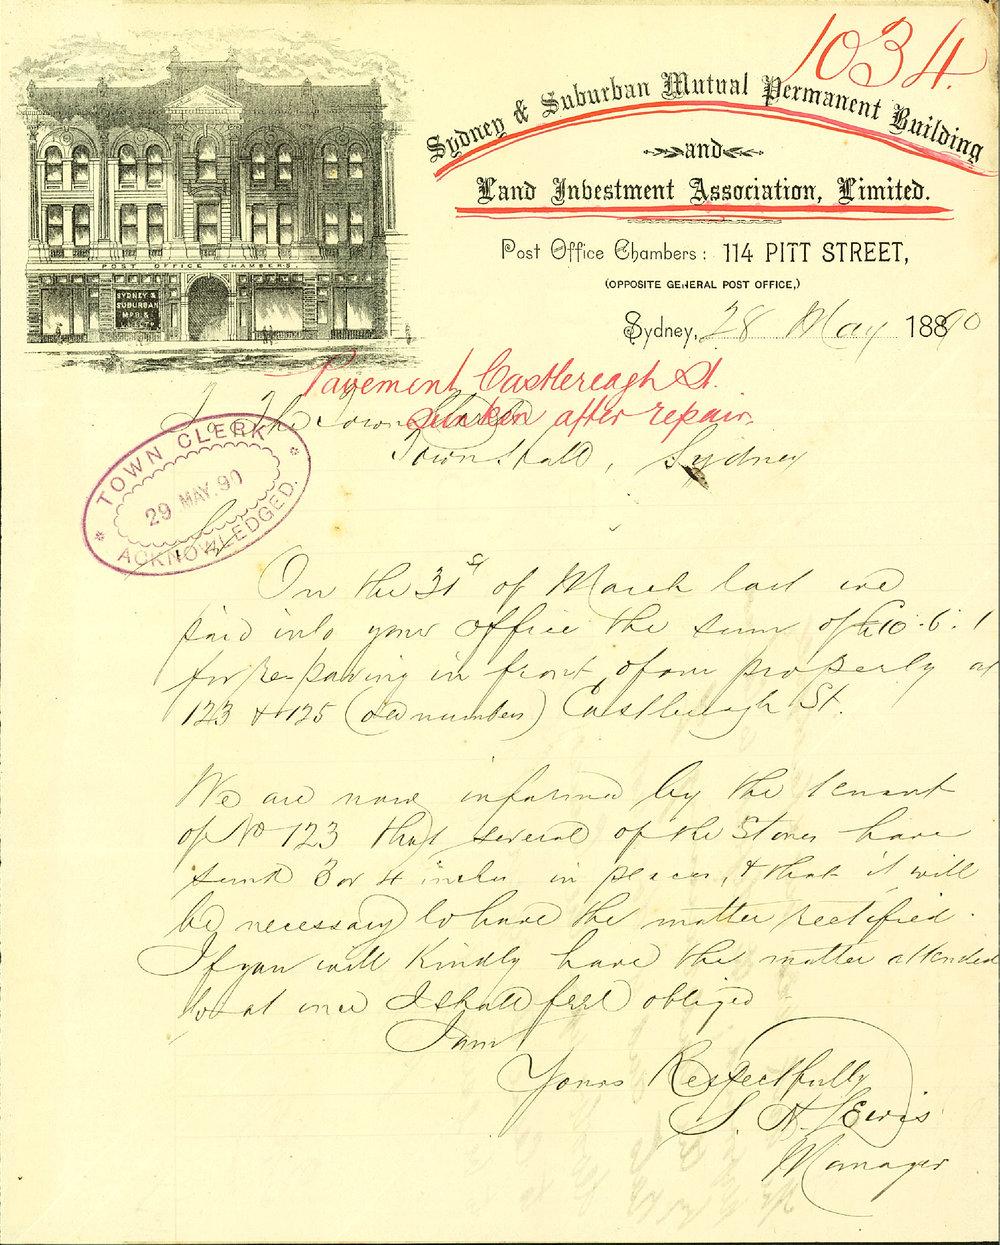 1034.
Sydney & Suburban Mutual Permanent Building
and
Land Investment Association, Limited.
Post Office Chambers: 114 PITT STREET,
(OPPOSITE GENERAL POST OFFICE,)
Sydney, 28 May 1890
POST OFFICE CHAMBERS
SYDNEY &
SUBURBAN
Pavement Castlereagh St.
sunken after repair.
To The Town Clerk
Town Hall, Sydney
TOWN CLERK
29 MAY. 90
ACKNOWLEDGED.
Sir
On the 31st of March last we
paid into your office the sum of £10.6.1
for re-paving in front of our property at
123 & 125 (old numbers) Castlereagh St.
We are now informed by the tenant
of No 123 that several of the stones have
sunk 3 or 4 inches in places, & that it will
be necessary to have the matter rectified.
If you will kindly have the matter attended
to at once I shall feel obliged
I am
Yours Respectfully
S. H. Lewis
Manager